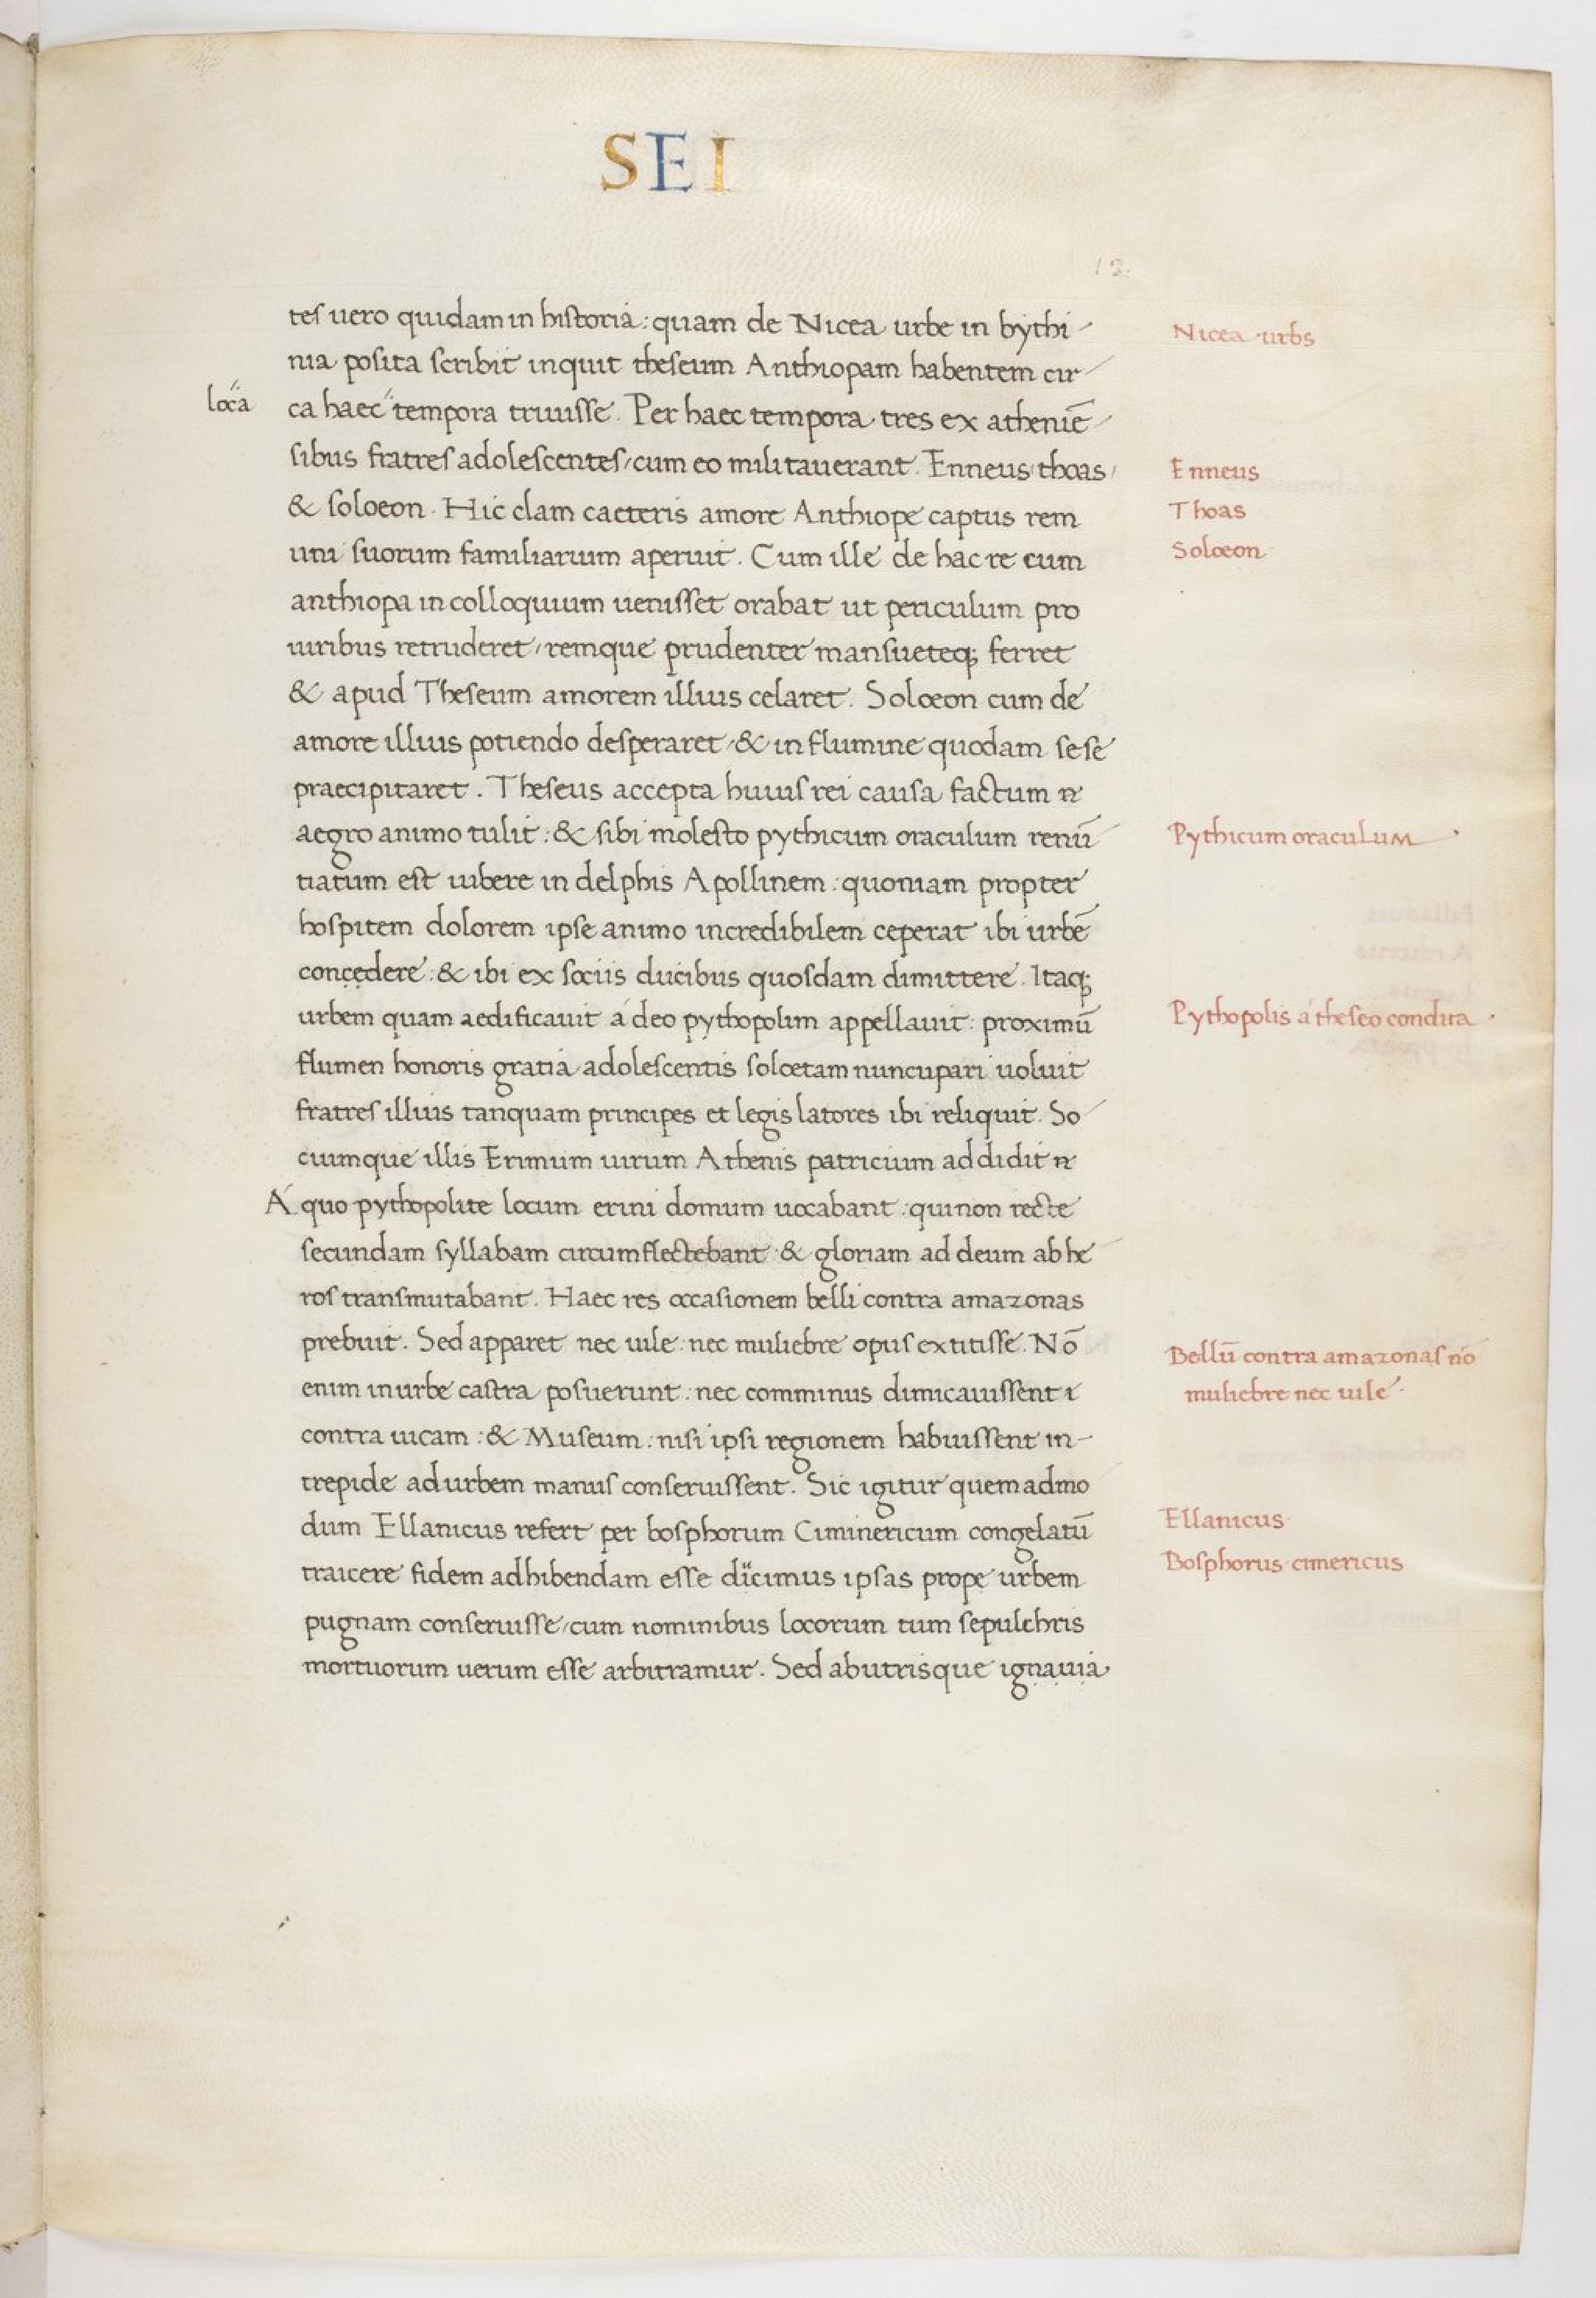 SEI
12.
tes uero quidam in historia: quam de Nicea urbe in bythi-
Nicea urbs
nia posita scribit inquit theseum Anthiopam habentem cir-
loca
ca haec tempora triuisse. Per haec tempora tres ex atheniē-
sibus fratres adolescentes, cum eo militauerant. Enneus, thoas,
Enneus
& soloeon. Hic clam caeteris amore Anthiope captus rem
Thoas
uni suorum familiarium aperuit. Cum ille de hac re cum
Soloeon
anthiopa in colloquium uenisset orabat ut periculum pro
uiribus retruderet, remque prudenter mansueteq; ferret
& apud Theseum amorem illius celaret. Soloeon cum de
amore illius potiendo desperaret, & in flumine quodam sese
praecipitaret. Theseus accepta huius rei causa factum
aegro animo tulit: & sibi molesto pythicum oraculum renū-
Pythicum oraculum
tiatum est iubere in delphis Apollinem: quoniam propter
hospitem dolorem ipse animo incredibilem ceperat ibi urbē
concedere: & ibi ex sociis ducibus quosdam dimittere. Itaq;
urbem quam aedificauit á deo pythopolim appellauit: proximū
Pythopolis á theseo condita
flumen honoris gratia adolescentis soloetam nuncupari uoluit
fratres illius tanquam principes et legis latores ibi reliquit. So-
ciumque illis Erimum uirum Athenis patricium addidit
Á quo pythopolite locum erini domum uocabant: qui non recte
secundam syllabam circumflectebant: & gloriam ad deum ab he-
ros transmutabant. Haec res occasionem belli contra amazonas
prebuit. Sed apparet nec uile: nec muliebre opus extitisse. Nō
Bellū contra amazonas nō
enim in urbe castra posuerunt: nec comminus dimicauissent
muliebre nec uile.
contra uicam: & Museum: nisi ipsi regionem habuissent in-
trepide ad urbem manus conseruissent. Sic igitur quemadmo
dum Ellanicus refert per bosphorum Ciminericum congelatū
Ellanicus
traicere fidem adhibendam esse dicimus ipsas prope urbem
Bosphorus cimericus
pugnam conseruisse, cum nominibus locorum tum sepulchris
mortuorum uerum esse arbitramur. Sed ab utrisque ignauia